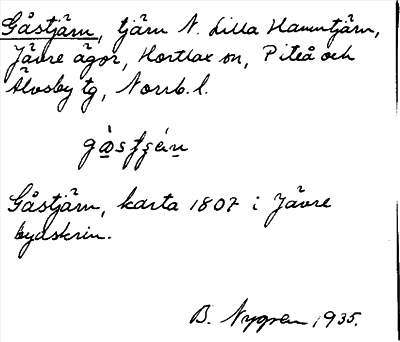 Gåstjärn, tjärn N. Lilla Hamntjärn,
Jävre ägor, Hortlax sn, Piteå och
Älvsby tg, Norrb. l.
Gåstjärn, karta 1807 i Jävre
bydskrin.
B. Nygren 1935.